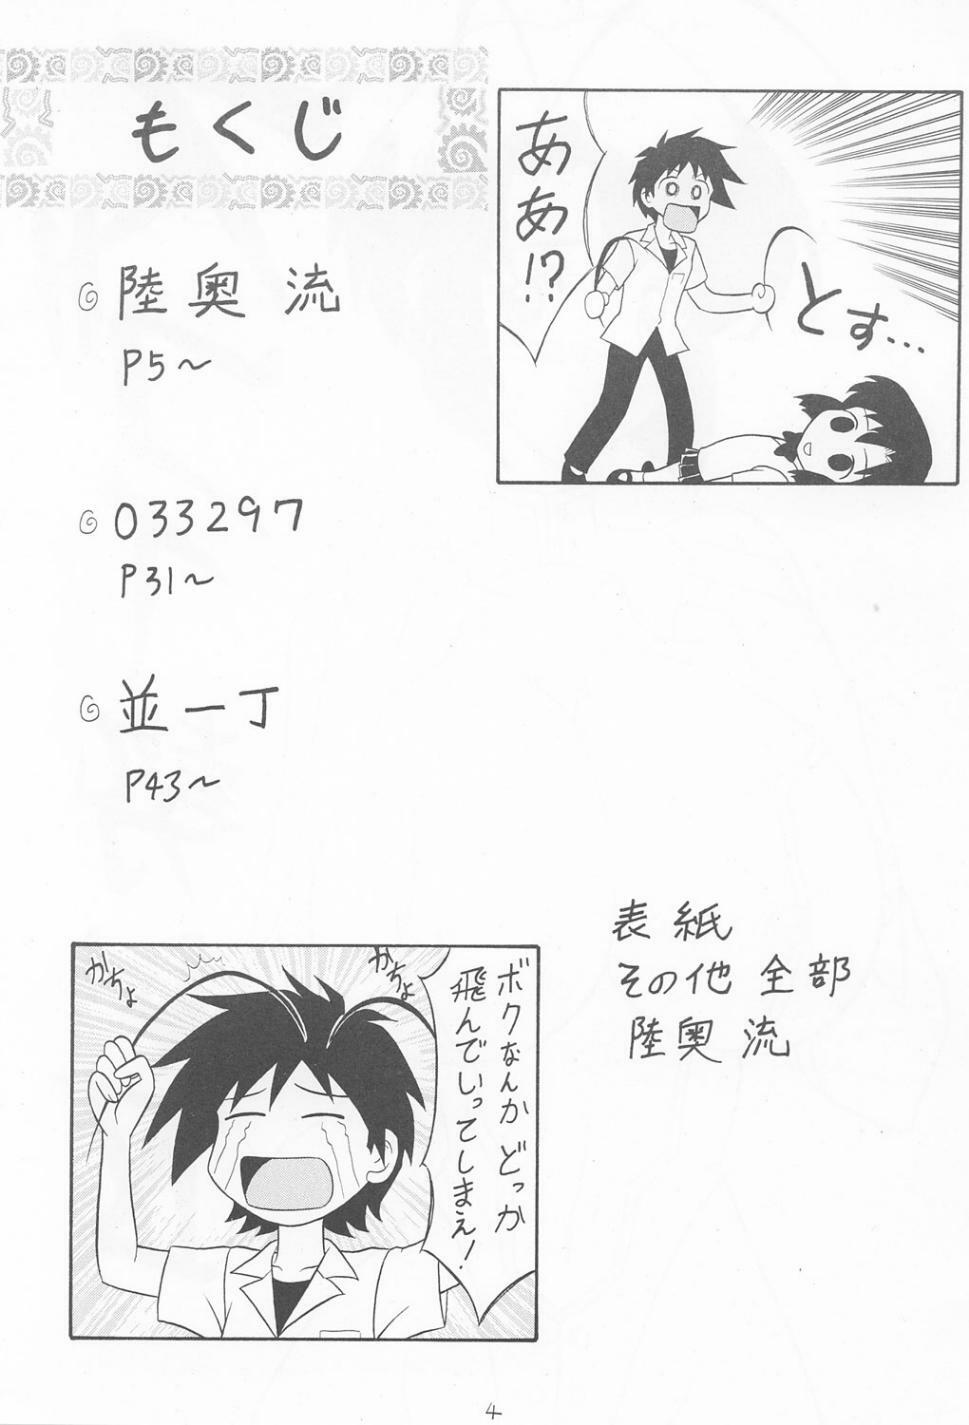 もくじ
あ
あ
!?
とす…
陸奥 流
P5～
033297
P31～
並一丁
P43～
表紙
その他 全部
陸奥 流
かちょ
かちょ
ボクなんか どっか
飛んでいってしまえ!
4